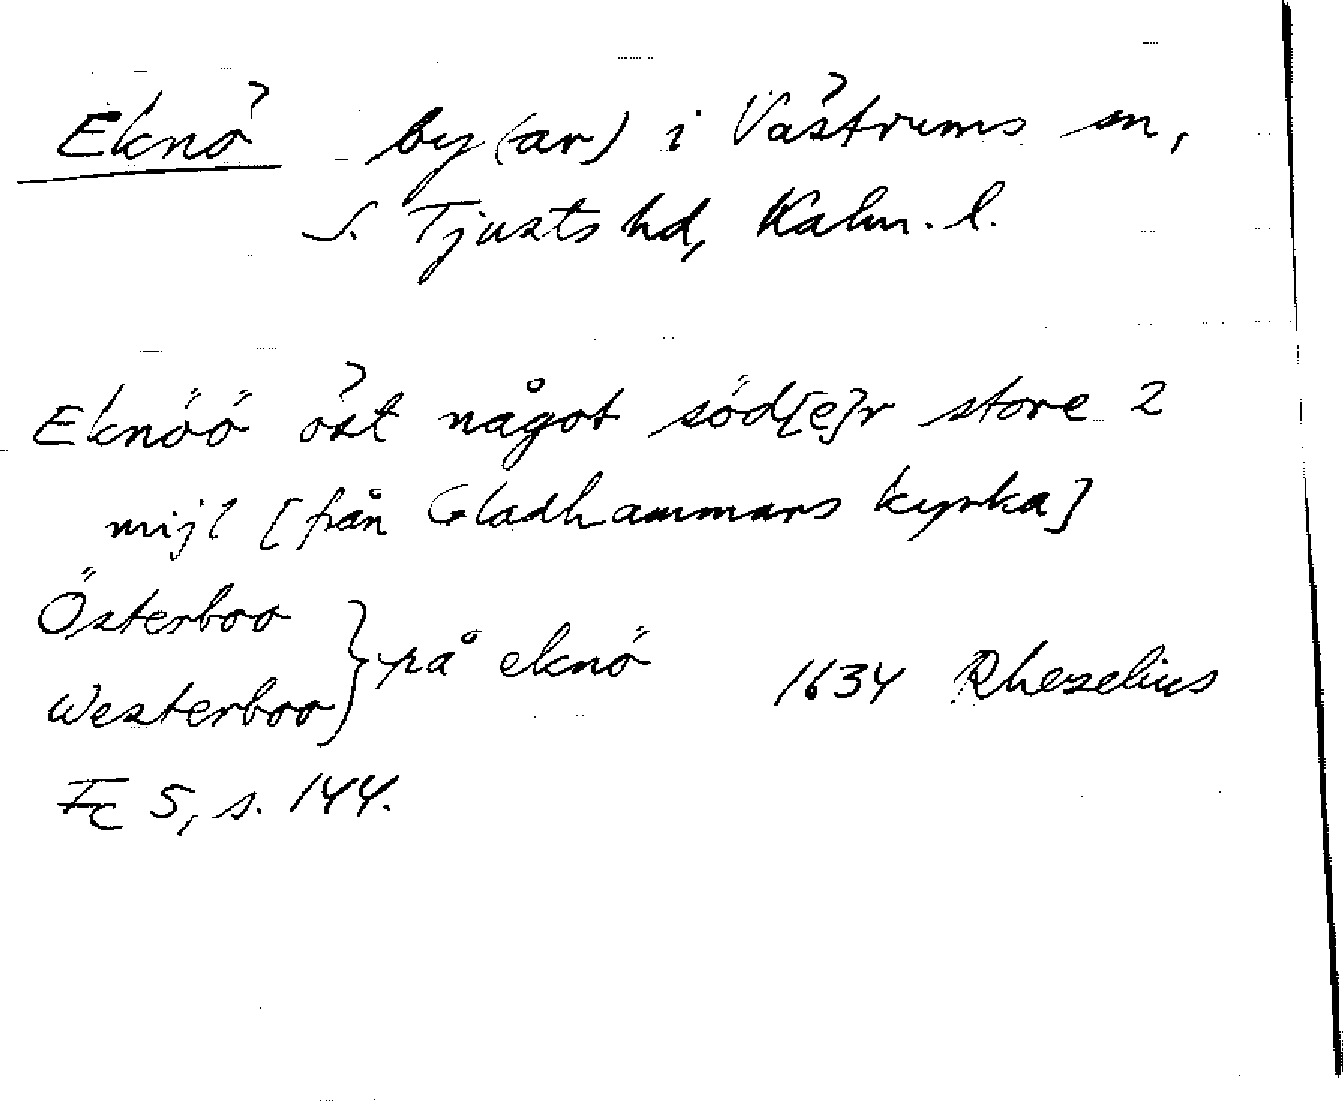 Eknö by(ar) i Västrums sn,
S. Tjusts hd, Kalm. l.
Eknöö öst något söd[e]r store 2
mijl [från Gladhammars kyrka]
Österboo
Westerboo } på eknö 1634 Rhezelius
Fc 5, s. 144.